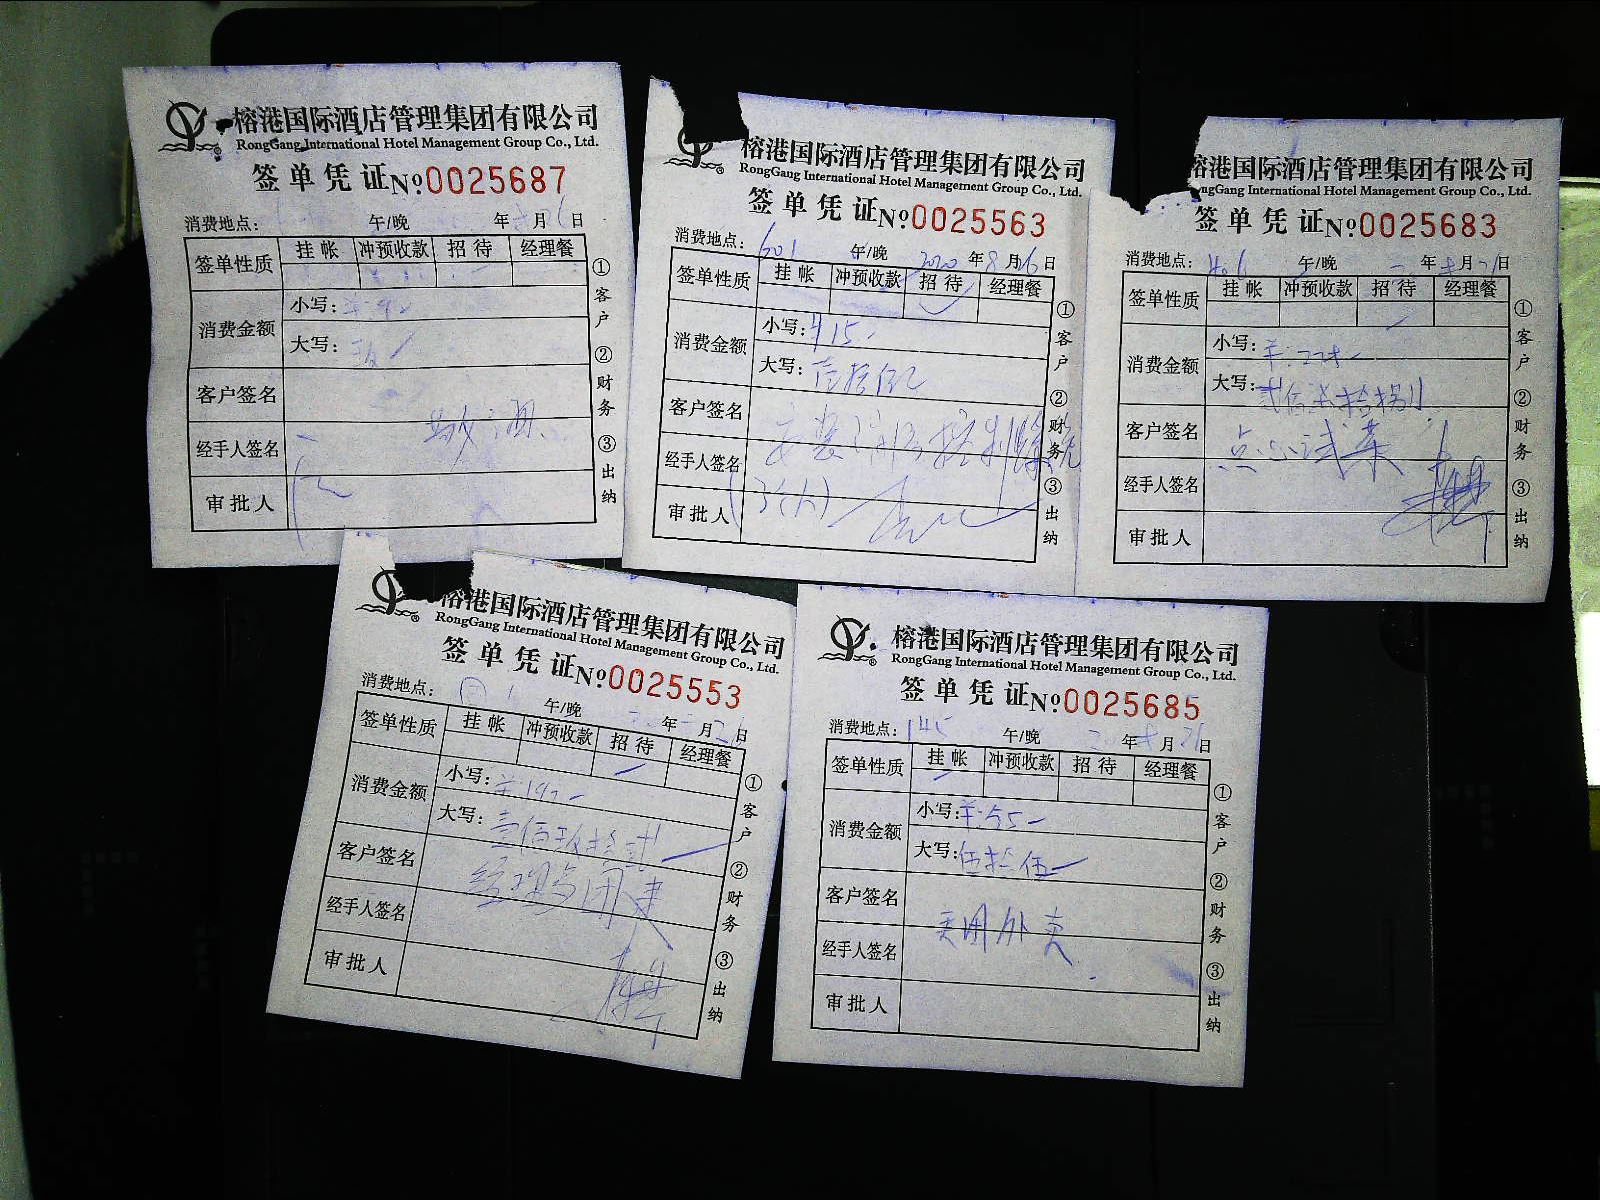 榕港国际酒店管理集团有限公司
RongGang International Hotel Management Group Co., Ltd.
签单凭证 №0025687
消费地点： 午/晚 年 月 日
签单性质 挂帐 冲预收款 招待 经理餐
消费金额 小写：
大写：
客户签名
经手人签名 敬酒
审批人
①客户 ②财务 ③出纳
榕港国际酒店管理集团有限公司
RongGang International Hotel Management Group Co., Ltd.
签单凭证 №0025563
消费地点：601 午/晚 2020年8月26日
签单性质 挂帐 冲预收款 招待 经理餐
消费金额 小写：¥15-
大写：壹拾伍
客户签名
经手人签名 安装消防控制系统
审批人 (3人)
①客户 ②财务 ③出纳
榕港国际酒店管理集团有限公司
ngGang International Hotel Management Group Co., Ltd.
签单凭证 №0025683
消费地点： 午/晚 年 月 日
签单性质 挂帐 冲预收款 招待 经理餐
消费金额 小写：
大写：
客户签名 点心试菜
经手人签名
审批人
①客户 ②财务 ③出纳
榕港国际酒店管理集团有限公司
RongGang International Hotel Management Group Co., Ltd.
签单凭证 №0025553
消费地点： 午/晚 年 月26日
签单性质 挂帐 冲预收款 招待 经理餐
消费金额 小写：¥192-
大写：壹佰玖拾贰
客户签名
经手人签名
审批人
①客户 ②财务 ③出纳
榕港国际酒店管理集团有限公司
RongGang International Hotel Management Group Co., Ltd.
签单凭证 №0025685
消费地点：145 午/晚 年 月26日
签单性质 挂帐 冲预收款 招待 经理餐
消费金额 小写：¥:55-
大写：伍拾伍
客户签名 美团外卖
经手人签名
审批人
①客户 ②财务 ③出纳